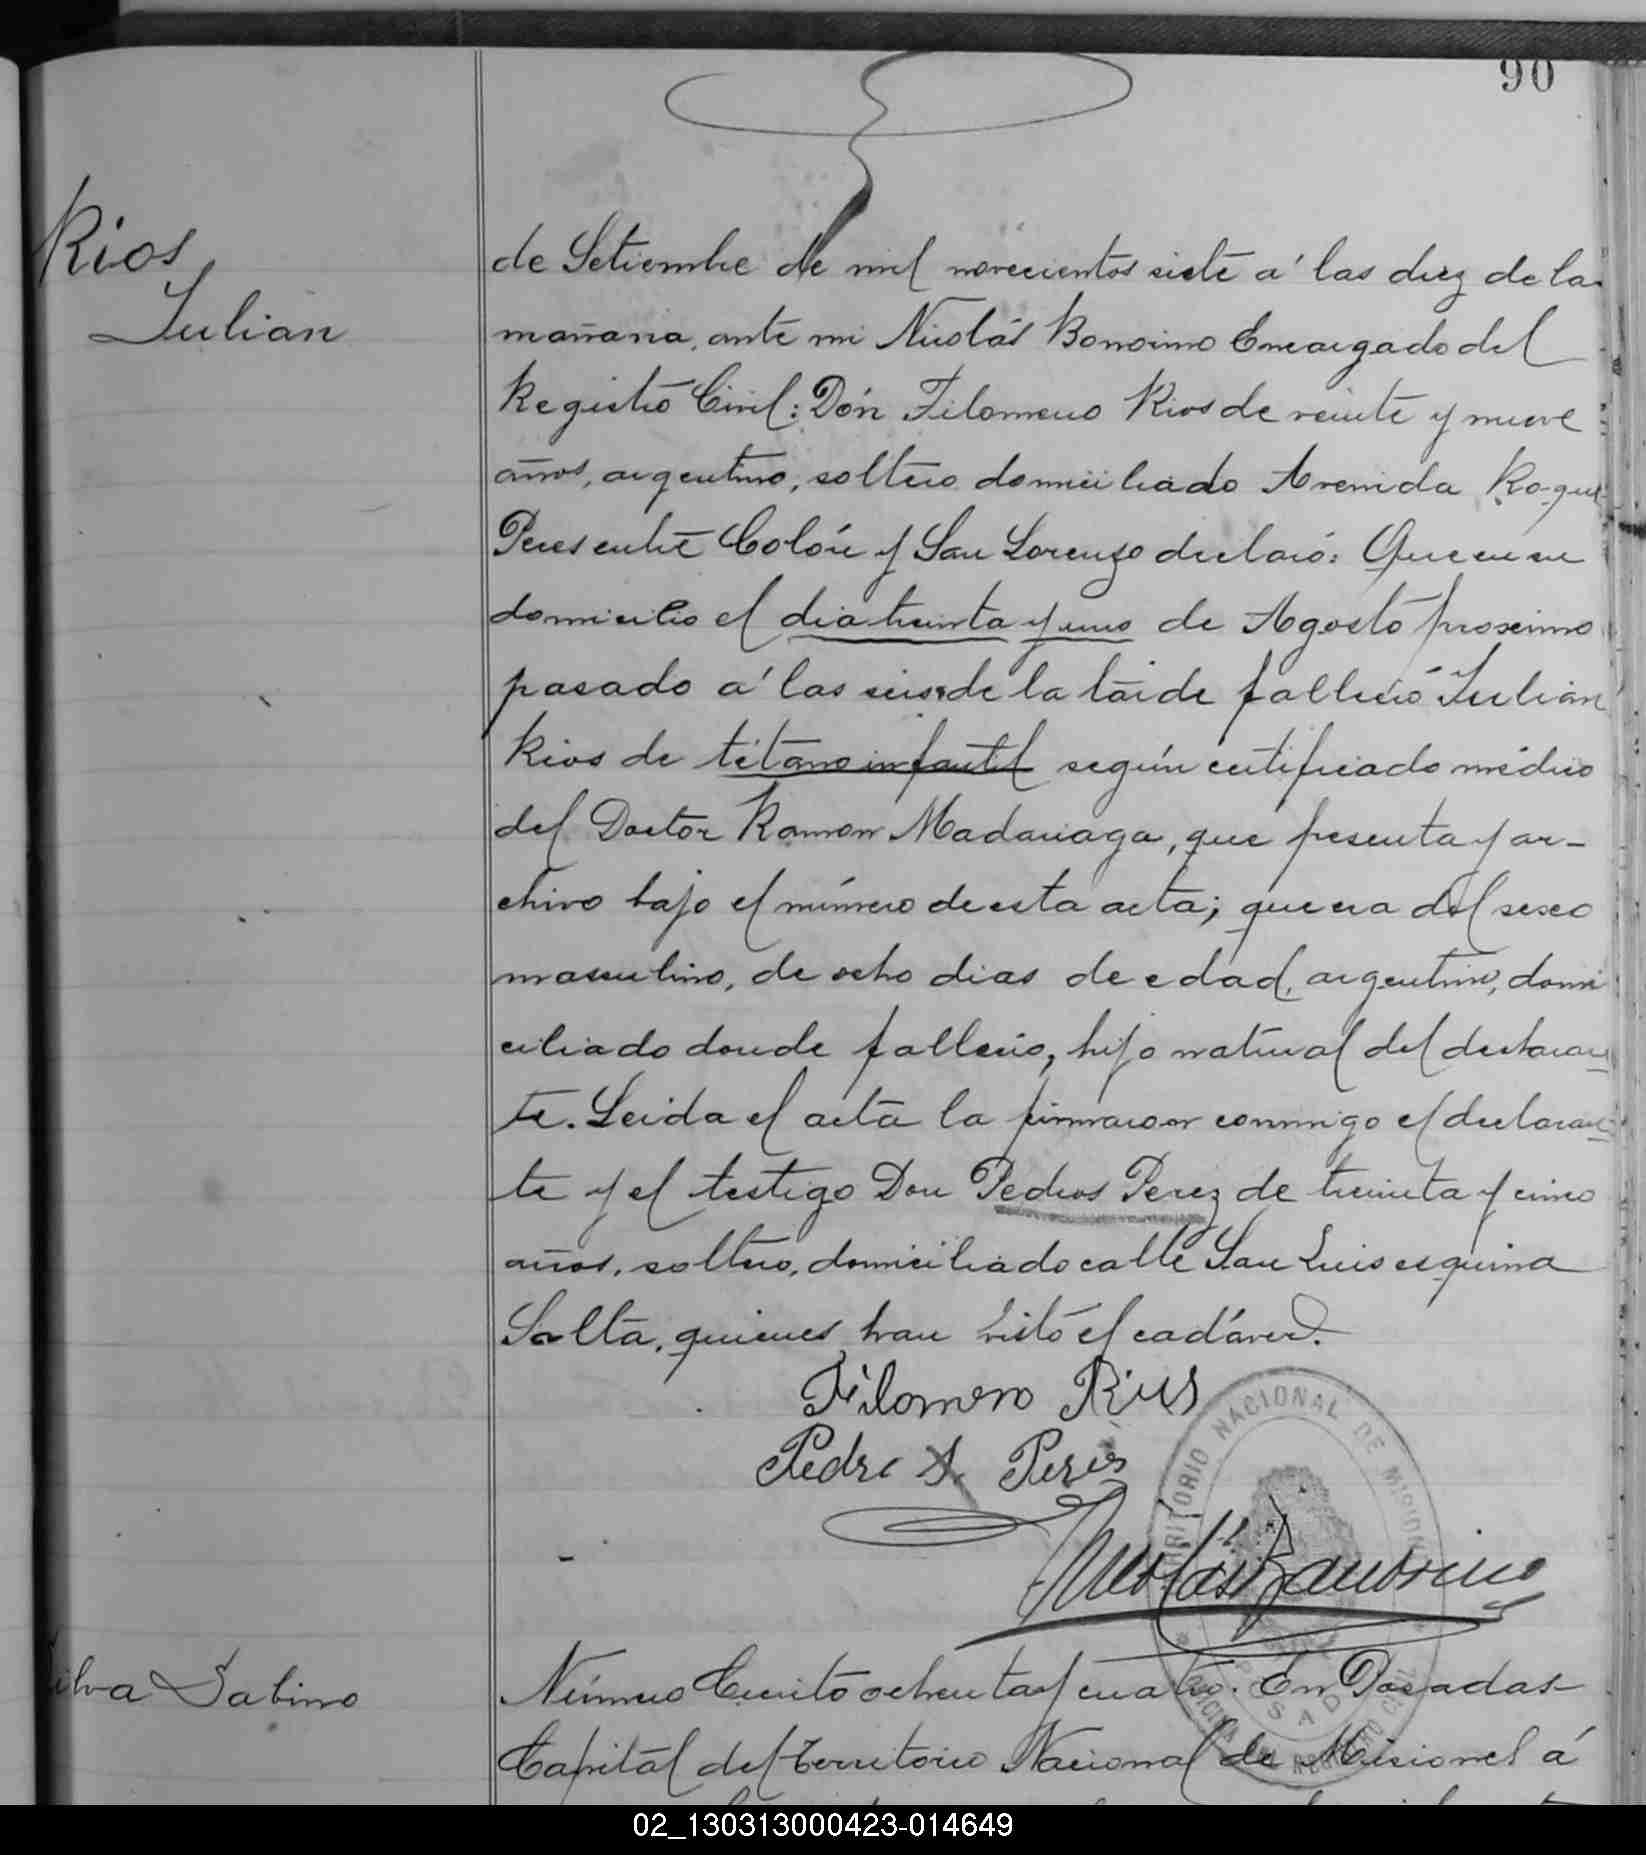 90
Rios
Julian
de Setiembre de mil novecientos siete á las diez de la
mañana, ante mi Nicolás Bonorino Encargado del
Registro Civil: Dón Filomeno Rios de veinte y nueve
años, argentino, soltero domiciliado Avenida Roque
Peres entre Colón y San Lorenzo declaró: Que en su
domicilio el dia treinta y uno de Agosto proximo
pasado á las seis de la tarde falleció Julian
Rios de tétano infantil según certificado médico
del Doctor Ramon Madariaga, que presenta y ar-
chivo bajo el número de esta acta; que era del sexo
masculino, de ocho dias de edad, argentino, domi
ciliado donde falleció, hijo natural del declaran
te. Leida el acta la firmaron conmigo el declaran
te y el testigo Don Pedros Perez de treinta y cinco
años, soltero, domiciliado calle San Luis esquina
Salta, quienes han visto el cadáver.
Filomeno Rius
Pedro S. Peres
Nicolás Bonorino
TERRITORIO NACIONAL DE MISIONES
POSADAS
OFICINA DEL REGISTRO CIVIL
Silva Sabino
Número Ciento ochenta y cuatro. En Posadas
Capital del Territorio Nacional de Misiones á
02_130313000423-014649